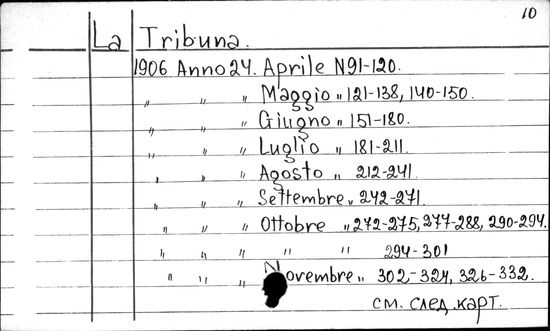 10
La Tribuna.
1906 Anno 24. Aprile N 91-120.
„ „ „ Maggio „ 121-138, 140-150.
„ „ „ Giugno „ 151-180.
„ „ „ Luglio „ 181-211.
„ „ „ Agosto „ 212-241.
„ „ „ Settembre „ 242-271.
„ „ „ Ottobre „ 272-275, 277-288, 290-294.
„ „ „ „ „ 294-301
„ „ „ Novembre „ 302-324, 326-332.
см. след. карт.